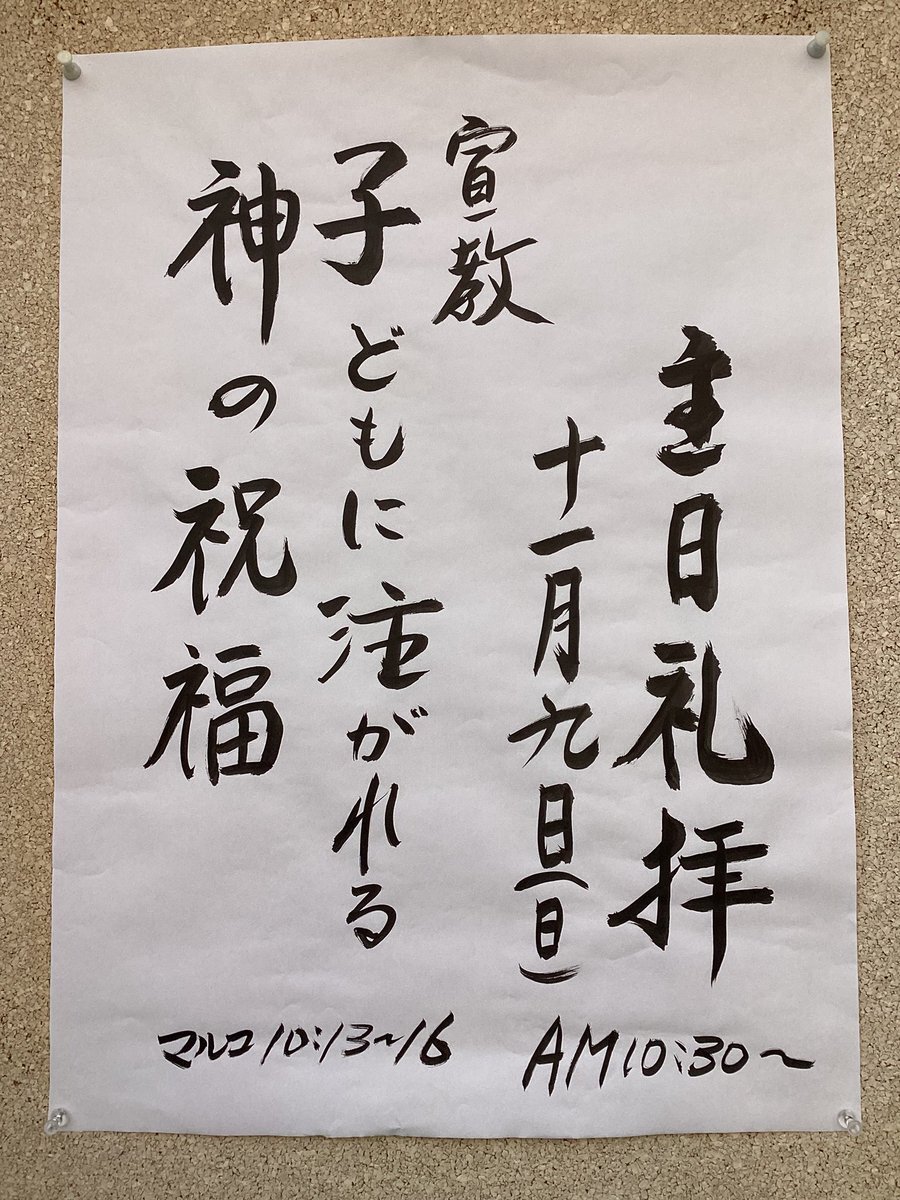 主日礼拝
十一月九日(日)
AM10:30~
宣教
子どもに注がれる
神の祝福
マルコ10:13~16